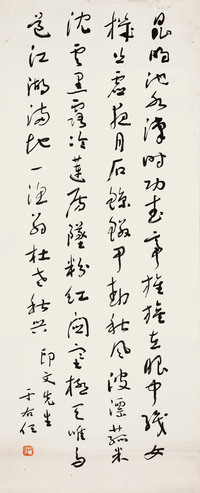 昆明池水漢時功武帝旌旗在眼中織女
機絲虛夜月石鯨鱗甲動秋風波漂菰米
沈雲黑露冷蓮房墜粉紅關塞極天唯鳥
道江湖滿地一漁翁杜老秋興
印文先生
于右任